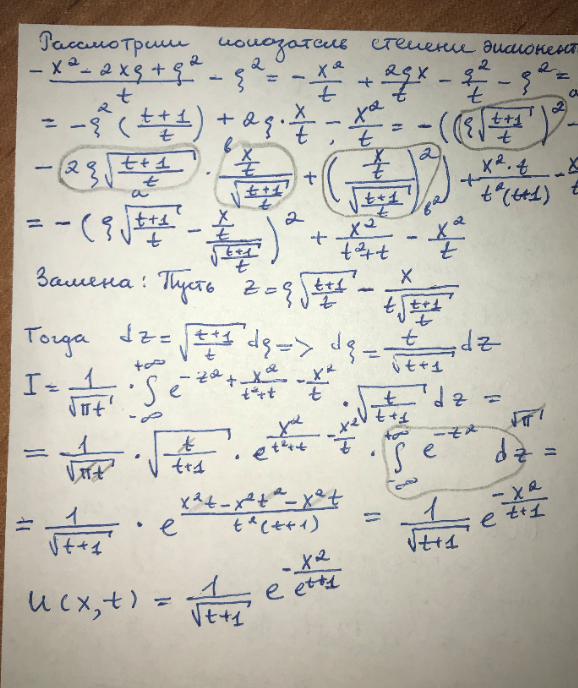 Рассмотрим показатель степени экспонент
- (x² - 2xξ + ξ²)/t - ξ² = - x²/t + 2ξx/t - ξ²/t - ξ² =
= -ξ² ((t+1)/t) + 2ξ · x/t - x²/t = - ((ξ√((t+1)/t))² -
- 2ξ√((t+1)/t) · (x/t)/√((t+1)/t) + ((x/t)/√((t+1)/t))²) + x²·t/(t²(t+1)) - x
a в в²
= - (ξ√((t+1)/t) - (x/t)/√((t+1)/t))² + x²/(t²+t) - x²/t
Замена: Пусть z = ξ√((t+1)/t) - x/(t√((t+1)/t))
Тогда dz = √((t+1)/t) dξ => dξ = t/√(t+1) dz
I = 1/√(πt) · ∫_{-∞}^{+∞} e^{-z² + x²/(t²+t) - x²/t} · √(t/(t+1)) dz =
= 1/√(πt) · √(t/(t+1)) · e^{x²/(t²+t) - x²/t} · ∫_{-∞}^{+∞} e^{-z²} dz = √π
= 1/√(t+1) · e^{(x²t - x²t² - x²t)/(t²(t+1))} = 1/√(t+1) e^{-x²/(t+1)}
u(x,t) = 1/√(t+1) e^{-x²/(et+1)}